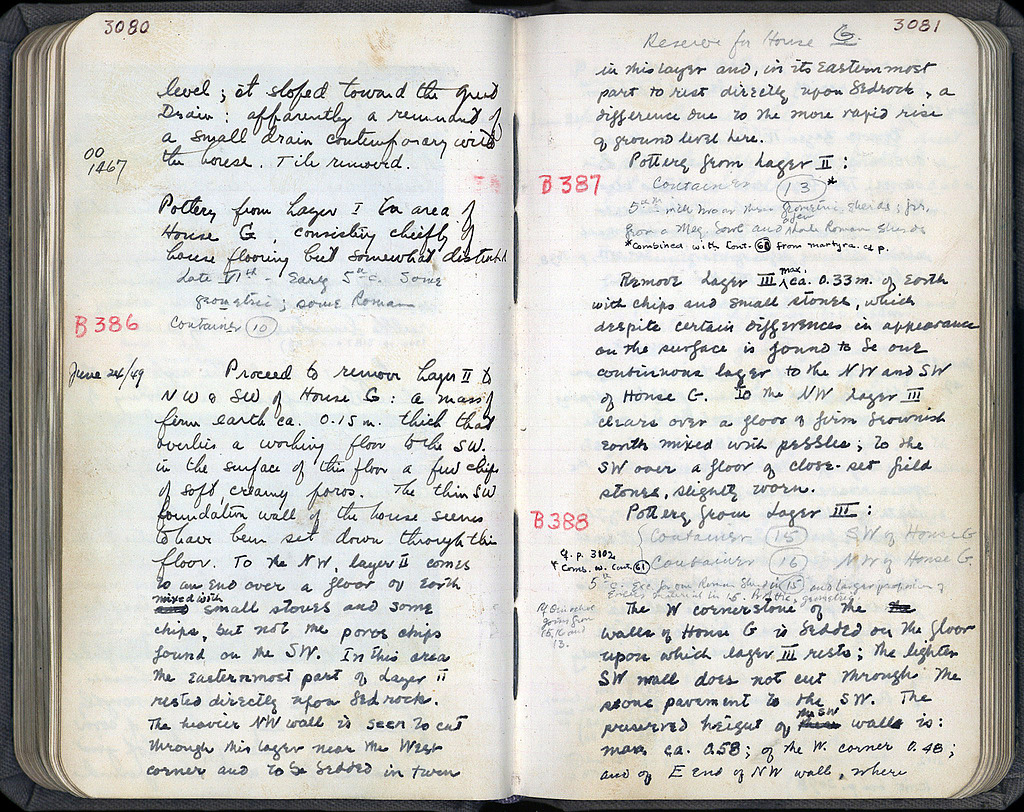 3080
level ; it sloped toward the great
Drain : apparently a remnant of
a small drain contemporary with
OO
1467
the house. Tile removed.
Pottery from Layer I in area of
House G, consisting chiefly of
house flooring but somewhat disturbed
Late VIth - Early 5th c. Some
geometric ; some Roman
B 386
Container 10
June 24/49
Proceed to remove Layer II to
NW & SW of House G : a mass of
firm earth ca. 0.15 m. thick that
overlies a working floor to the SW.
in the surface of this floor a few chips
of soft, creamy poros. The thin SW
foundation wall of the house seems
to have been set down through this
floor. To the NW, layer II comes
to an end over a floor of earth
mixed with small stones and some
chips, but not the poros chips
found on the SW. In this area
the easternmost part of Layer II
rested directly upon bedrock.
The heavier NW wall is seen to cut
through this layer near the West
corner and to be bedded in turn
3081
Reserve for House G.
in this layer and, in its Easternmost
part to rest directly upon bedrock, a
difference due to the more rapid rise
of ground level here.
Pottery from Layer II :
B 387
Container 13 *
5th with two or three geometric sherds ; frr.
from a Meg. bowl and Roman sherds
*Combined with Cont. 60 from martyra. cf p.
Remove Layer III max. ca. 0.33 m. of Earth
with chips and small stones, which
despite certain differences in appearance
on the surface is found to be one
continuous layer to the NW and SW
of House G. To the NW Layer III
clears over a floor of firm brownish
Earth mixed with pebbles ; to the
SW over a floor of close-set field
stones, slightly worn.
B 388
Pottery from Layer III :
Container 15 SW of House G
Container 16 NW of House G.
cf. p. 3102
* Comb. w. Cont. 61
5th c. Exc. for one Roman Sherd in 15 and larger proportion of
Earlier material in 15. Prottic, geometric.
joins from
15, 16 and
13.
The W cornerstone of the
walls of House G is bedded on the floor
upon which layer III rests ; the lighter
SW wall does not cut through the
stone pavement to the SW. The
preserved height of the SW wall is :
max ca. 0.58 ; of the W. corner 0.48 ;
and of E end of NW wall, where